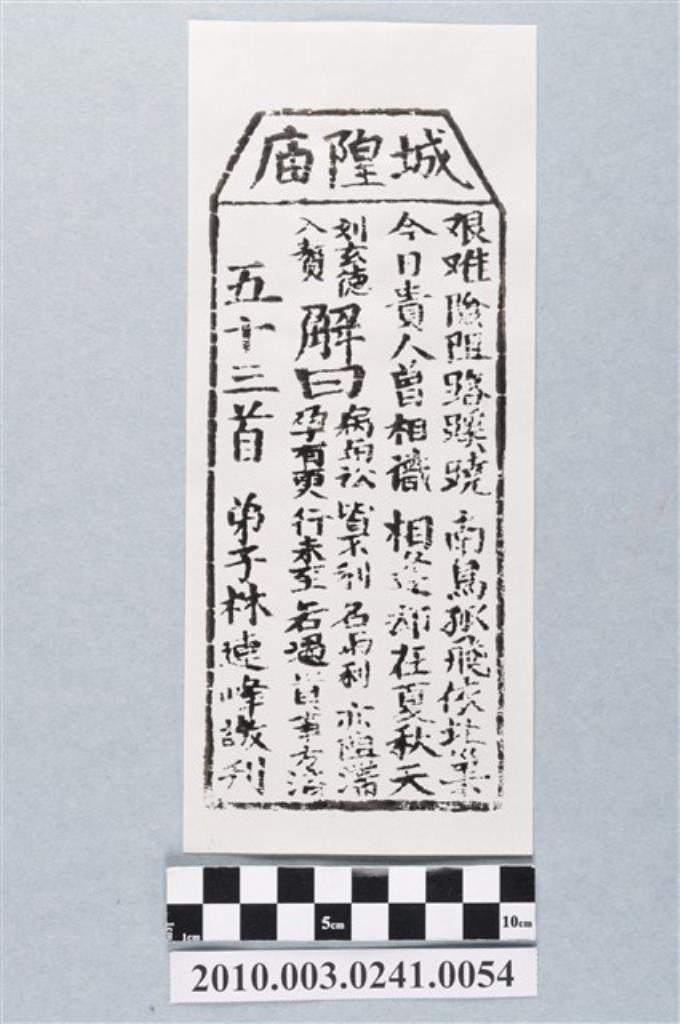 城隍庙
艰难險阻路蹊蹺 南鳥孤飛依北巢
今日貴人曾相識 相逢却在夏秋天
刘玄德
入贅
解曰
病与讼 皆不利 名与利 亦阻滯
孕有更 行未至 若過 事方
五十三首 弟子林連峰敬刊
1cm 5cm 10cm
2010.003.0241.0054